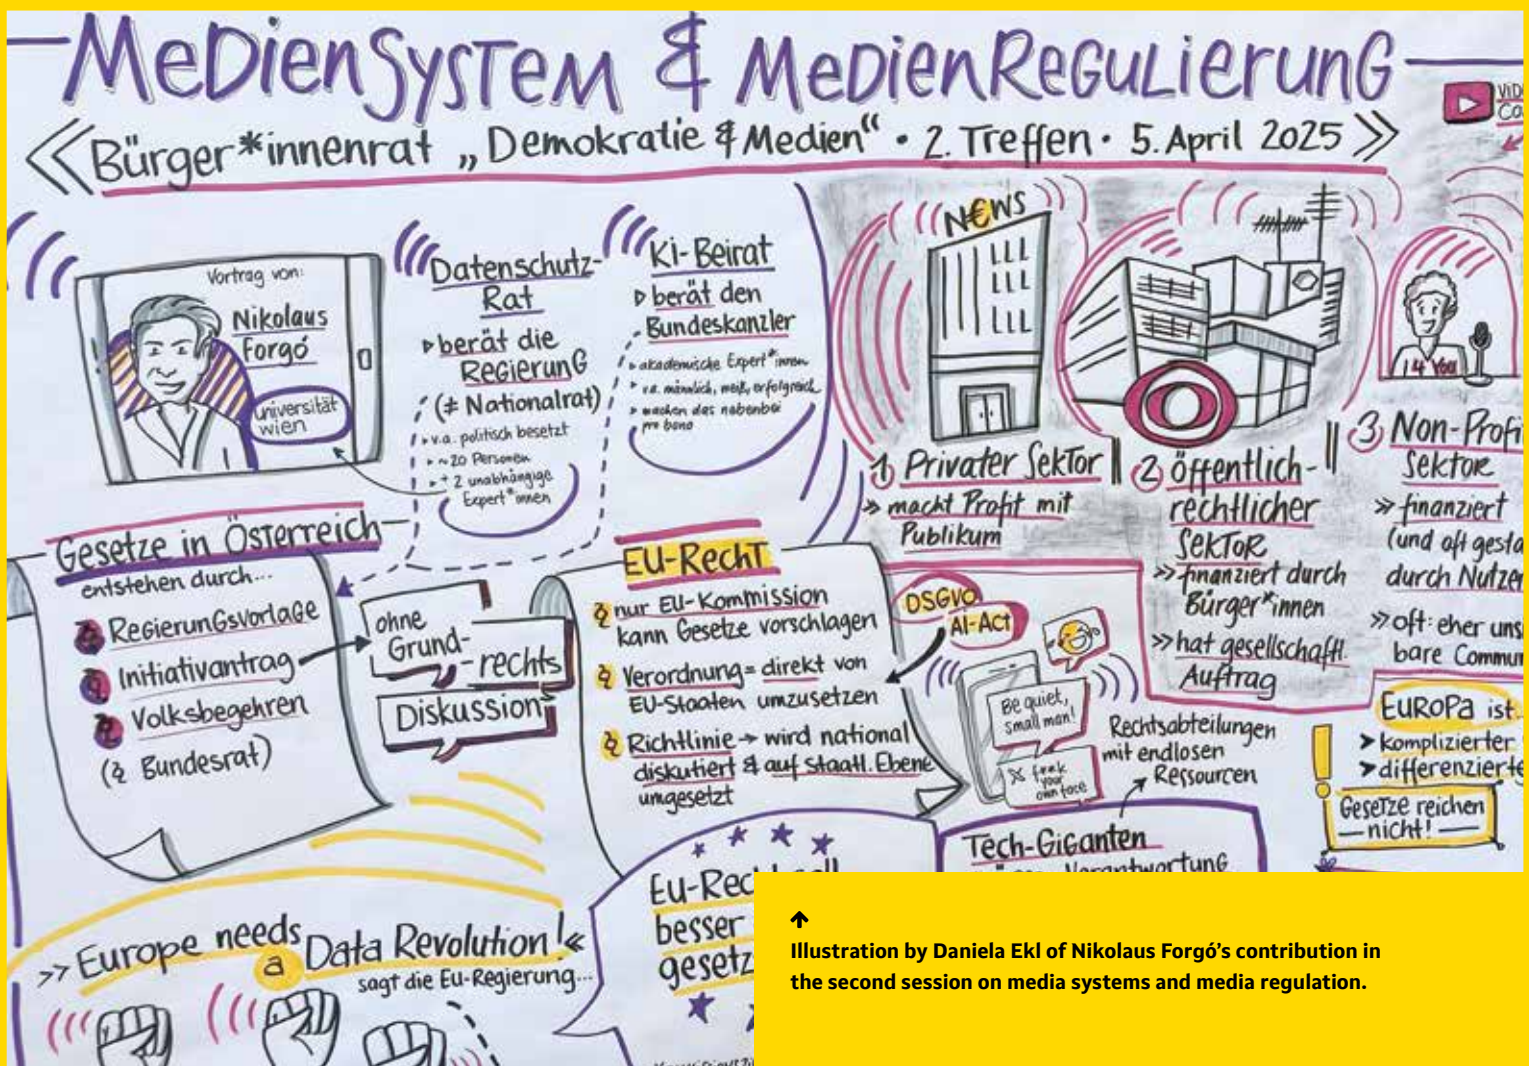 MedienSystem & MedienRegulierung
«Bürger*innenrat „Demokratie & Medien“ • 2. Treffen • 5. April 2025»
Vortrag von:
Nikolaus
Forgó
universität
wien
Datenschutz-
Rat
▹ berät die
Regierung
(≠ Nationalrat)
▸ v.a. politisch besetzt
▸ ~20 Personen
▸ + 2 unabhängige
Expert*innen
KI-Beirat
▹ berät den
Bundeskanzler
▸ akademische Expert*innen
▸ v.a. männlich, weiß, erfolgreich
▸ machen das nebenbei
pro bono
N€WS
1) Privater Sektor
» macht Profit mit
Publikum
2) öffentlich-
rechtlicher
Sektor
» finanziert durch
Bürger*innen
» hat gesellschaftl.
Auftrag
14 You
3) Non-Profi
Sektor
» finanziert
(und oft gesta
durch Nutzer
» oft: eher uns
bare Commun
Gesetze in Österreich
entstehen durch...
§ Regierungsvorlage
§ Initiativantrag
§ Volksbegehren
(§ Bundesrat)
ohne
Grund-
rechts
Diskussion
EU-Recht
§ nur EU-Kommission
kann Gesetze vorschlagen
§ Verordnung = direkt von
EU-Staaten umzusetzen
§ Richtlinie → wird national
diskutiert & auf staatl. Ebene
umgesetzt
DSGVO
AI-Act
Be quiet,
small man!
your
own face
Rechtsabteilungen
mit endlosen
Ressourcen
Tech-Giganten
Verantwortung
Europa ist
➤ komplizierter
➤ differenzierte
!
Gesetze reichen
— nicht! —
» Europe needs a Data Revolution! «
sagt die EU-Regierung...
EU-Rec
besser
gesetz
↑
Illustration by Daniela Ekl of Nikolaus Forgó’s contribution in
the second session on media systems and media regulation.